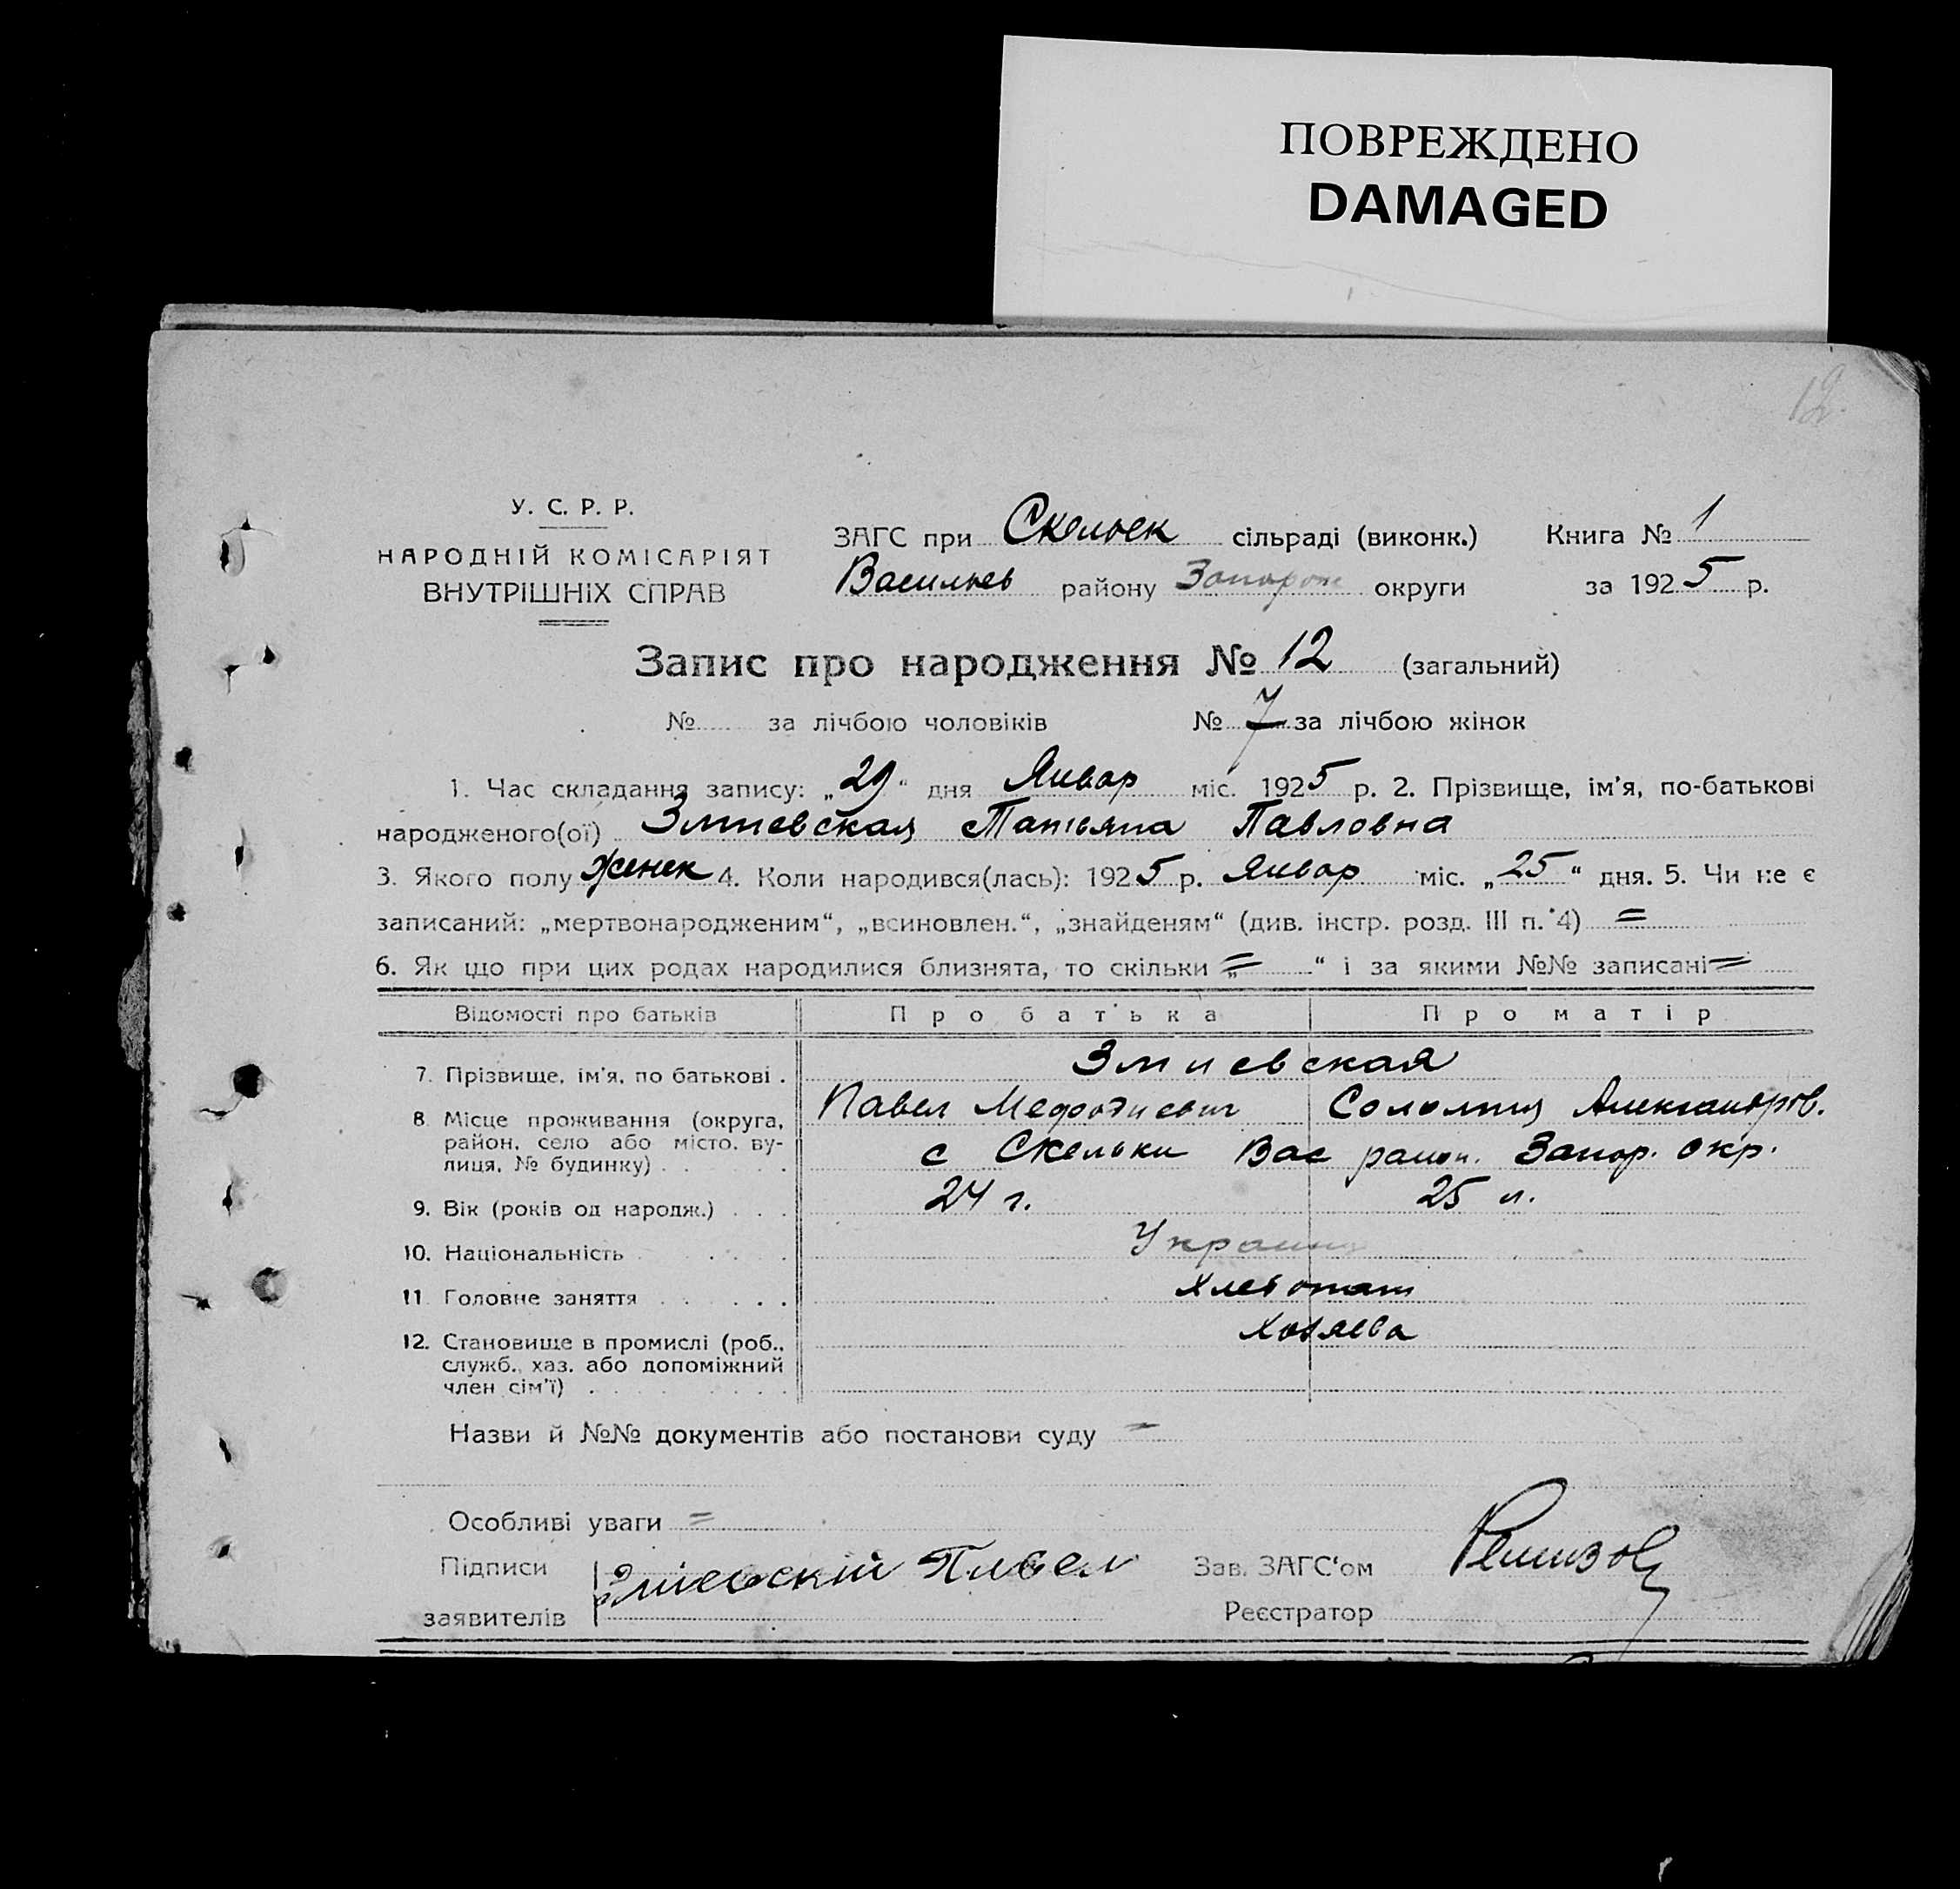 ПОВРЕЖДЕНО
DAMAGED
12.
У. С. Р. Р.
НАРОДНІЙ КОМІСАРІЯТ
ВНУТРІШНІХ СПРАВ
ЗАГС при Скельек сільраді (виконк.) Книга № 1
Васильев району Запорож округи за 1925 р.
Запис про народження № 12 (загальний)
№ за лічбою чоловіків № 7 за лічбою жінок
1. Час складання запису: „29“ дня Январ міс. 1925 р. 2. Прізвище, ім'я, по-батькові
народженого(ої) Змиевская Татьяна Павловна
3. Якого полу женск 4. Коли народився(лась): 1925 р. Январ міс. „25“ дня. 5. Чи не є
записаний: „мертвонародженим“, „всиновлен.“, „знайденям“ (див. інстр. розд. III п. 4) =
6. Як що при цих родах народилися близнята, то скільки „=“ і за якими №№ записані =
Відомості про батьків Про батька Про матір
7. Прізвище, ім'я, по батькові . Змиевская
Павел Мефодиевич Соломия Александров.
8. Місце проживання (округа,
район, село або місто, ву-
лиця, № будинку) . . . с Скельки Вас район. Запор. окр.
9. Вік (років од народж.) . . . 24 г. 25 л.
10. Національність . . . . Украинц
11. Головне заняття . . . . . Хлебопаш
12. Становище в промислі (роб.,
служб., хаз. або допоміжний
член сім'ї) . . . . . . Хозяева
Назви й №№ документів або постанови суду =
Особливі уваги =
Підписи
заявителів
Зміевскій Павел
Зав. ЗАГС‘ом Ремизов
Реєстратор